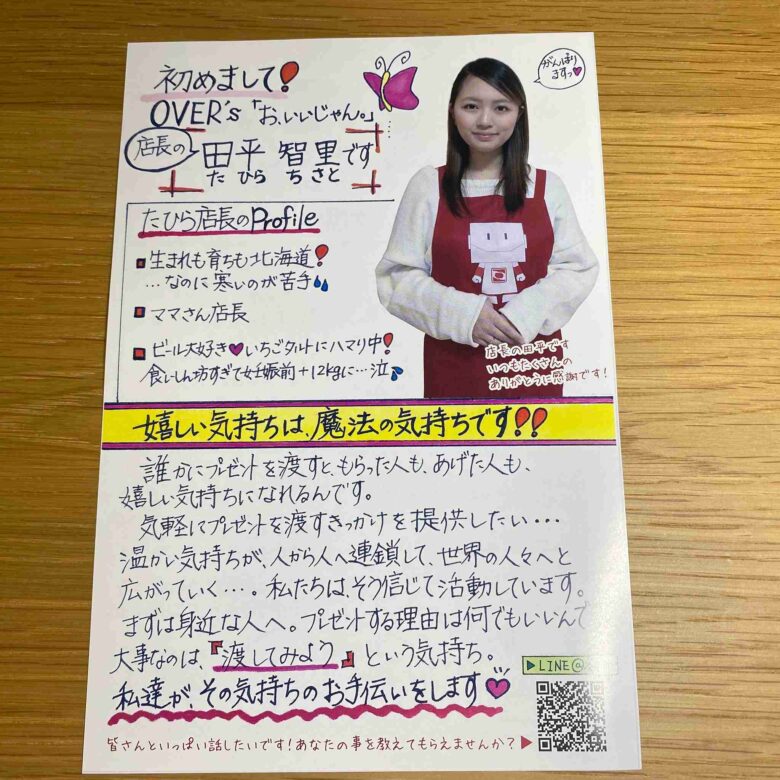 初めまして!
がんばり
ますっ♥
OVER's「お、いいじゃん。」
店長の
田平 智里です
たひら ちさと
たひら店長のProfile
生まれも育ちも北海道!
…なのに寒いのが苦手
ママさん店長
ビール大好き♥いちごタルトにハマり中!
食いしん坊すぎて妊娠前+12kgに…泣
店長の田平です
いつもたくさんの
ありがとうに感謝です!
嬉しい気持ちは、魔法の気持ちです!!
誰かにプレゼントを渡すと、もらった人も、あげた人も、
嬉しい気持ちになれるんです。
気軽にプレゼントを渡すきっかけを提供したい…
温かい気持ちが、人から人へ連鎖して、世界の人々へと
広がっていく…。私たちは、そう信じて活動しています。
まずは身近な人へ。プレゼントする理由は何でもいいんで
大事なのは、『渡してみよう』という気持ち。
▶LINE@
私達が、その気持ちのお手伝いをします♥
皆さんといっぱい話したいです!あなたの事を教えてもらえませんか?▶